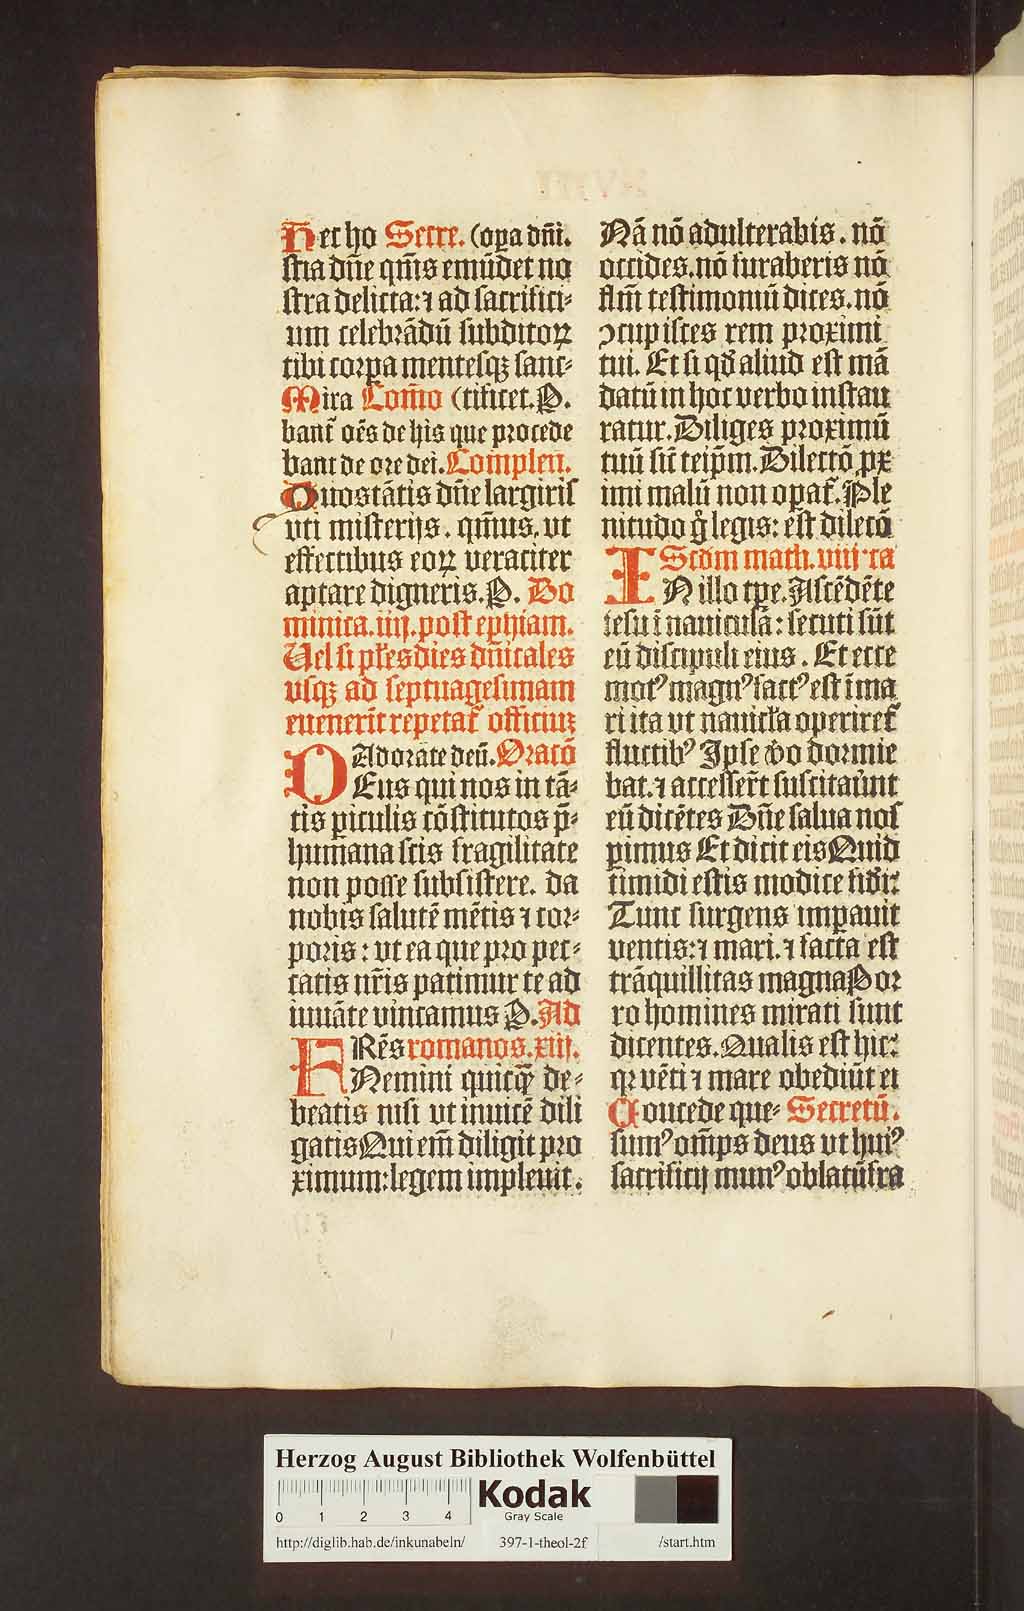 Hec ho Secre. (opa dñi.
stia dñe qm̃s emũdet no
stra delicta: ⁊ ad sacrifici⸗
um celebrãdũ subditoꝝ
tibi corpa mentesqꝫ sanc⸗
Mira Com̃o (tificet. P.
bant̃ oẽs de his que procede
bant de ore dei. Complen.
Quos tãtis dñe largiris
vti misterijs. qm̃us, vt
effectibus eoꝝ veraciter
aptare digneris. P. Do
minica. iiij. post ephiam.
Uel si płes dies dñicales
vsqꝫ ad septuagesimam
euenerĩt repetat̃ officiuꝫ
Adorate deũ. Oracõ
DEus qui nos in tã⸗
tis piculis cõstitutos p̃⸗
humana scis fragilitate
non posse subsistere. da
nobis salutẽ mẽtis ⁊ cor⸗
poris: vt ea que pro pec⸗
catis nr̃is patimur te ad
iuuãte vincamus P. Ad
FRẽs romanos. xiij.
Nemini quicq̃ de⸗
beatis nisi vt inuicẽ dili
gatis Qui em̃ diligit pro
ximum: legem impleuit.
Nã nõ adulterabis. nõ
occides. nõ furaberis nõ
flm̃ testimoniũ dices. nõ
ꝯcupisces rem proximi
tui. Et si qd̃ aliud est mã
datũ in hoc verbo instau
ratur. Diliges proximũ
tuũ sic̃ teip̃m. Dilectõ px
imi malũ non opat̃. Ple
nitudo g̊ legis: est dilectõ
Scdm math. viij ca
IN illo tpe. Ascẽdẽte
iesu ĩ nauiculã: secuti sũt
eũ discipuli eius. Et ecce
motꝰ magnꝰ factꝰ est ĩ ma
ri ita vt nauicła operiret̃
fluctibꝰ Ipse ṽo dormie
bat. ⁊ accesser̃t suscitauñt
eũ dicẽtes Dñe salua nos
pimus Et dicit eis Quid
timidi estis modice fidei?
Tunc surgens impauit
ventis: ⁊ mari. ⁊ facta est
trãquillitas magna Por
ro homines mirati sunt
dicentes. Qualis est hic?
qꝛ vẽti ⁊ mare obediũt ei
Concede que⸗ Secretũ.
sumꝰ om̃ps deus vt huiꝰ
sacrificij munꝰ oblatũ fra
Herzog August Bibliothek Wolfenbüttel
0 1 2 3 4
Kodak
Gray Scale
http://diglib.hab.de/inkunabeln/ 397-1-theol-2f /start.htm